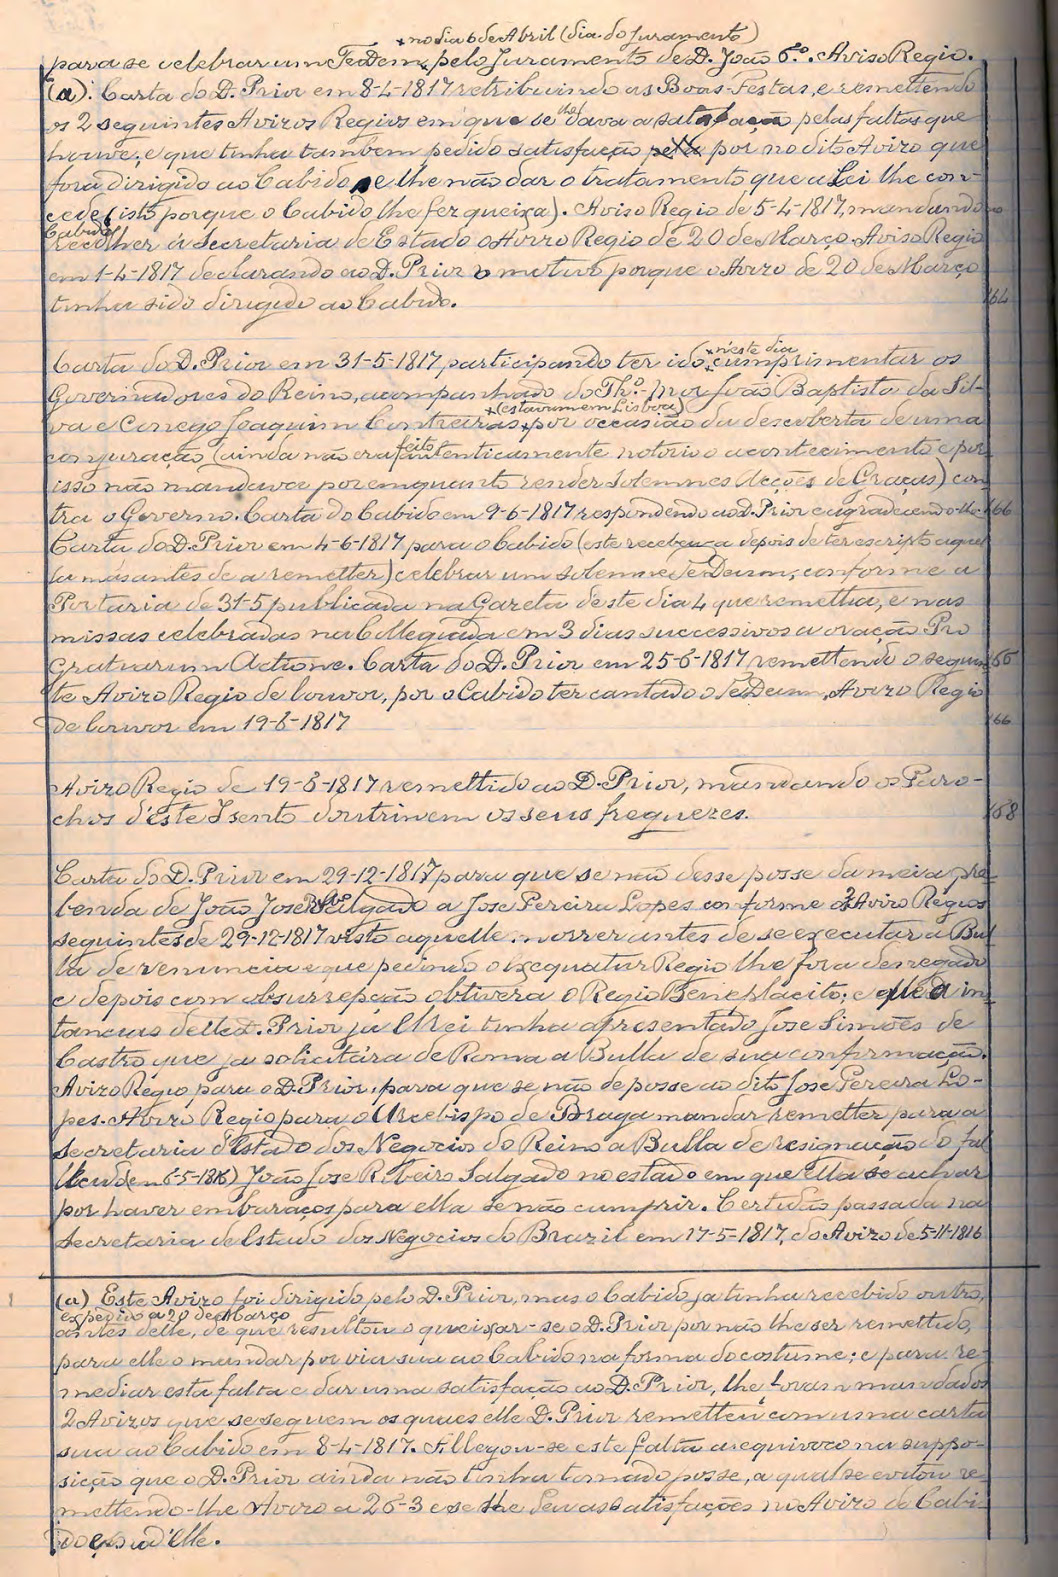 * no dia 6 de Abril (dia do Juramento)
para se celebrar um TeDeum * pelo Juramento de D. João 6º. Aviso Regio.
(a). Carta do D. Prior em 8-4-1817 retribuindo as Boas-Festas, e remettendo
os 2 seguintes Avizos Regios em que se lhe dava a satisfação pelas faltas que
houve, e que tinha tambem pedido satisfação por no dito Avizo que
fora dirigido ao Cabido, se lhe não dar o tratamento que a Lei lhe con-
cede (isto porque o Cabido lhe fez queixa). Aviso Regio de 5-4-1817, mandando ao
Cabido
recolher á Secretaria de Estado o Avizo Regio de 20 de Março. Aviso Regio
em 1-4-1817 declarando ao D. Prior o motivo porque o Avizo de 20 de Março
tinha sido dirigido ao Cabido.
164
Carta do D. Prior em 31-5-1817, participando ter ido * n'este dia cumprimentar os
Governadores do Reino, acompanhado do Thº. Mor João Baptista da Sil-
va e Conego Joaquim Contreiras * (estavam em Lisboa) por occasião da descoberta de uma
conjuração (ainda não era feito autenticamente notorio o acontecimento e por
isso não mandava por emquanto render Solemnes Acções de Graças) con-
tra o Governo. Carta do Cabido em 9-6-1817 respondendo ao D. Prior e agradecendo-lhe. 166
Carta do D. Prior em 4-6-1817 para o Cabido (este recebeu-a depois de ter escripto aquel-
la mas antes de a remetter) celebrar um solemne TeDeum, conforme a
Portaria de 31-5 publicada na Gazeta deste dia 4 que remettia, e nas
missas celebradas na Collegiada em 3 dias successivos a oração Pro
Gratiarum Actione. Carta do D. Prior em 25-6-1817, remettendo o seguin- 165
te Avizo Regio de louvor, por o Cabido ter cantado o TeDeum, Avizo Regio
de louvor em 19-6-1817 166
Avizo Regio de 19-6-1817 remettido ao D. Prior, mandando os Paro-
chos d'este Isento doutrinem os seus freguezes. 168
Carta do D. Prior em 29-12-1817 para que se não desse posse da meia pre-
benda de João José Ribº Salgado a Jose Pereira Lopes conforme os 2 Avizo Regios
seguintes de 29-12-1817 visto aquelle morrer antes de se executar a Bul-
la de renuncia e que pedindo o Exequatur Regio lhe fora denegado
e depois com obsurrepção obtivera o Regio Beneplacito; e que a in-
tancias delle D. Prior já ElRei tinha apresentado Jose Simões de
Castro que ja solicitára de Roma a Bulla de sua confirmação.
Avizo Regio para o D. Prior, para que se não de posse ao dito Jose Pereira Lo-
pes. Avizo Regio para o Arcebispo de Braga mandar remetter para a
Secretaria d'Estado dos Negocios do Reino a Bulla de resignação do fal-
lecido (em 6-5-1816) João Jose Ribeiro Salgado no estado em que ella se achar
por haver embaraços para ella se não cumprir. Certidão passada na
Secretaria de Estado dos Negocios do Brazil em 17-5-1817, do Avizo de 5-11-1816
(a) Este Avizo foi dirigido pelo D. Prior, mas o Cabido ja tinha recebido outro,
expedido a 20 de Março
antes delle, de que resultou o queixar-se o D. Prior por não lhe ser remettido,
para elle o mandar por via sua ao Cabido na forma do costume; e para re-
mediar esta falta e dar uma satisfação ao D. Prior, lhe foram mandados
2 Avizos que se seguem os quaes elle D. Prior remetteu com uma carta
sua ao Cabido em 8-4-1817. Allegou-se esta falta a equivoco na suppo-
sição que o D. Prior ainda não tinha tomado posse, a qual se evitou re-
mettendo-lhe Avizo a 26-3 e se lhe deu as satisfações no Avizo do Cabi-
do d'elle.